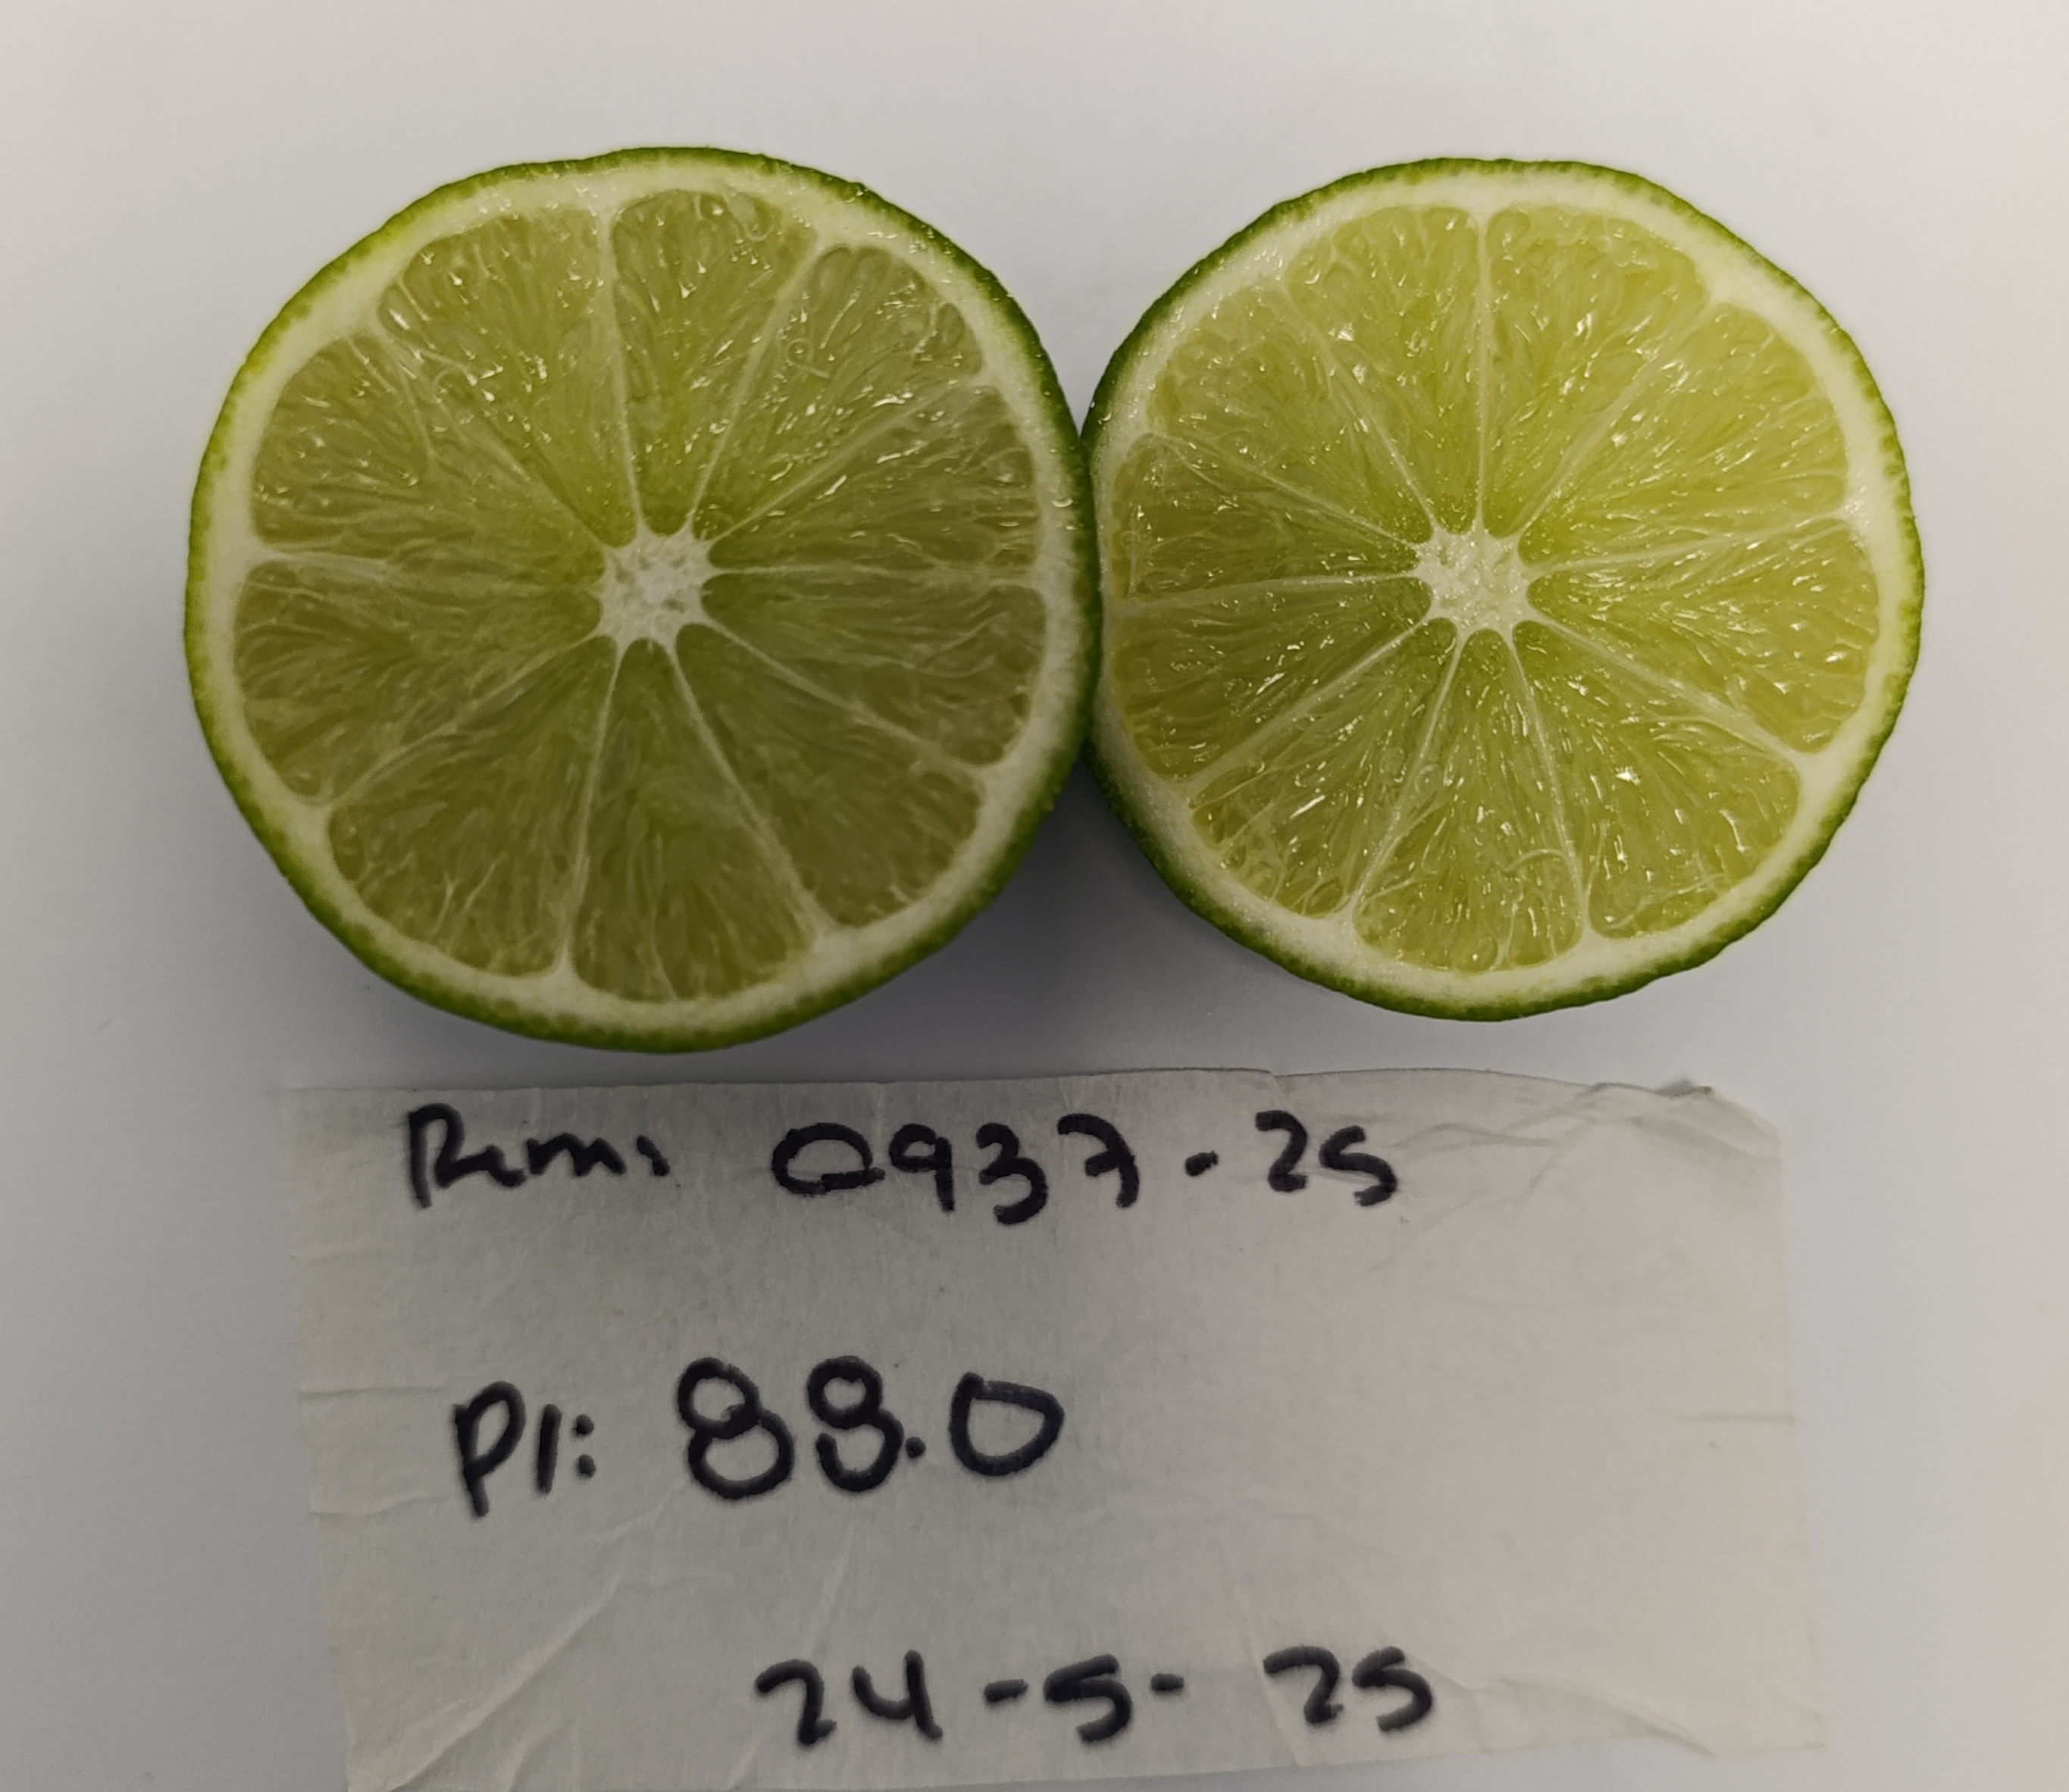 Rem: 0937-25
P1: 88.0
24-5-25